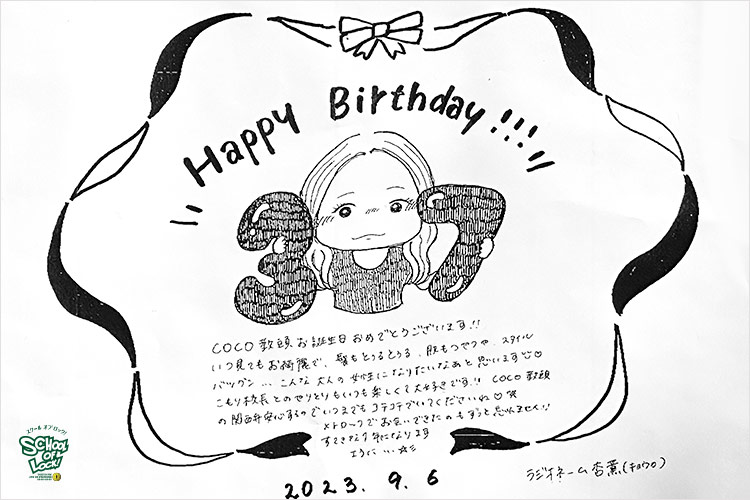 Happy Birthday!!!
37
COCO教頭お誕生日おめでとうございます!!
いつ見てもお綺麗で、髪もとぅるとぅる、肌もつやつや、スタイル
バツグン…こんな大人の女性になりたいなあと思います♡
こもり校長とのやりとりもいつも楽しくて大好きです!! COCO教頭
の関西弁安心するのでいつまでもコテコテでいてくださいね♡
メトロックでお会いできたのもずっと忘れません!!
すてきな1年になります
ように…☆彡
2023.9.6
ラジオネーム杏薫(キョウカ)
スクール オブ ロック!
SCHOOL
OF
LOCK!